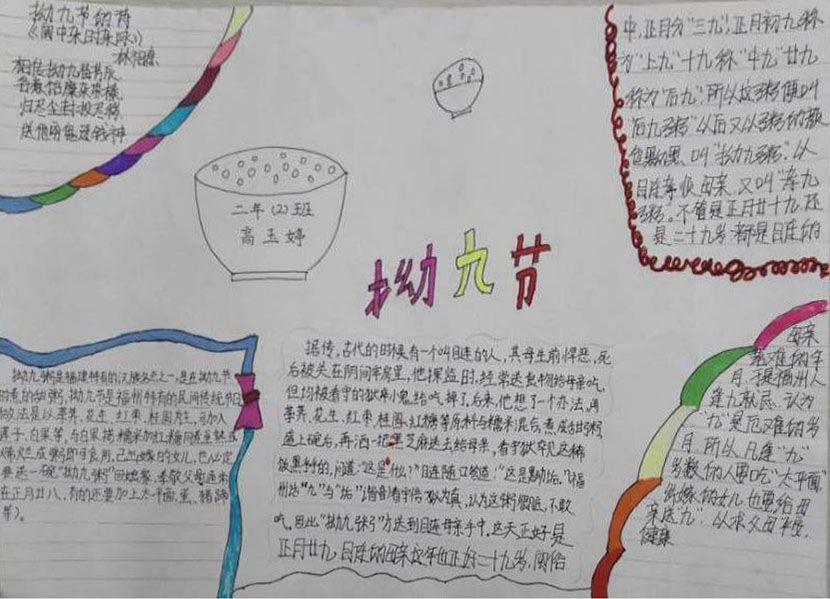 拗九节的诗
《闽中岁时杂咏》
相传拗九
送他
二年(2)班
高玉婷
拗九节
据传,古代的时候有一个叫目连的人,其母生前悍恶,死
后被关在阴间牢房里,他探监时,经常送食物给母亲吃
但均被看守的狱卒小鬼给吃掉了,后来,他想了一个办法,用
荸荠,花生,红枣,桂圆,红糖等原料与糯米混后,煮成甜粥
盛上碗后,再洒一把黑芝麻送去给母亲,看守狱卒见这稀
饭黑乎乎的,问道:"这是什么?"目连随口答道:"这是黝垢。"福
州话"九"与"垢"谐音看守信以为真,认为这粥很脏,不敢
吃。因此"拗九粥"方送到目连母亲手中。这天正好是
正月廿九,目连的母亲这年也正好二十九岁,闽俗
中,正月分"三九",正月初九称
为"上九"十九称"中九"廿九
称为"后九"所以这粥便叫
"后九粥"以后又以粥的颜
色黝黑,叫"拗九粥"以
目连孝仪母亲,又叫"孝九
粥"。不管是正月廿九,还
是二十九岁都是目连的
母亲
苦难的年
月,于是福州人
逢九就忌,认为
"九"是厄难的岁
月,所以凡逢"九"
岁数的人要吃"太平面"
出嫁的女儿也要给母
亲送"九",以求父母平安,
健康
拗九粥是福建特有的汉族名点之一,是在拗九节
时煮的甜粥,拗九节是福州特有的民间传统节日
做法是以荸荠、花生、红枣、桂圆为主,可加入
莲子、白果等,与白粥、糯米加红糖同煮至熟
即可食用,已出嫁的女儿,也必定
要送一碗"拗九粥"回娘家,孝敬父母通常
在正月廿八,有的还要加上太平面,蛋、猪蹄
等)。